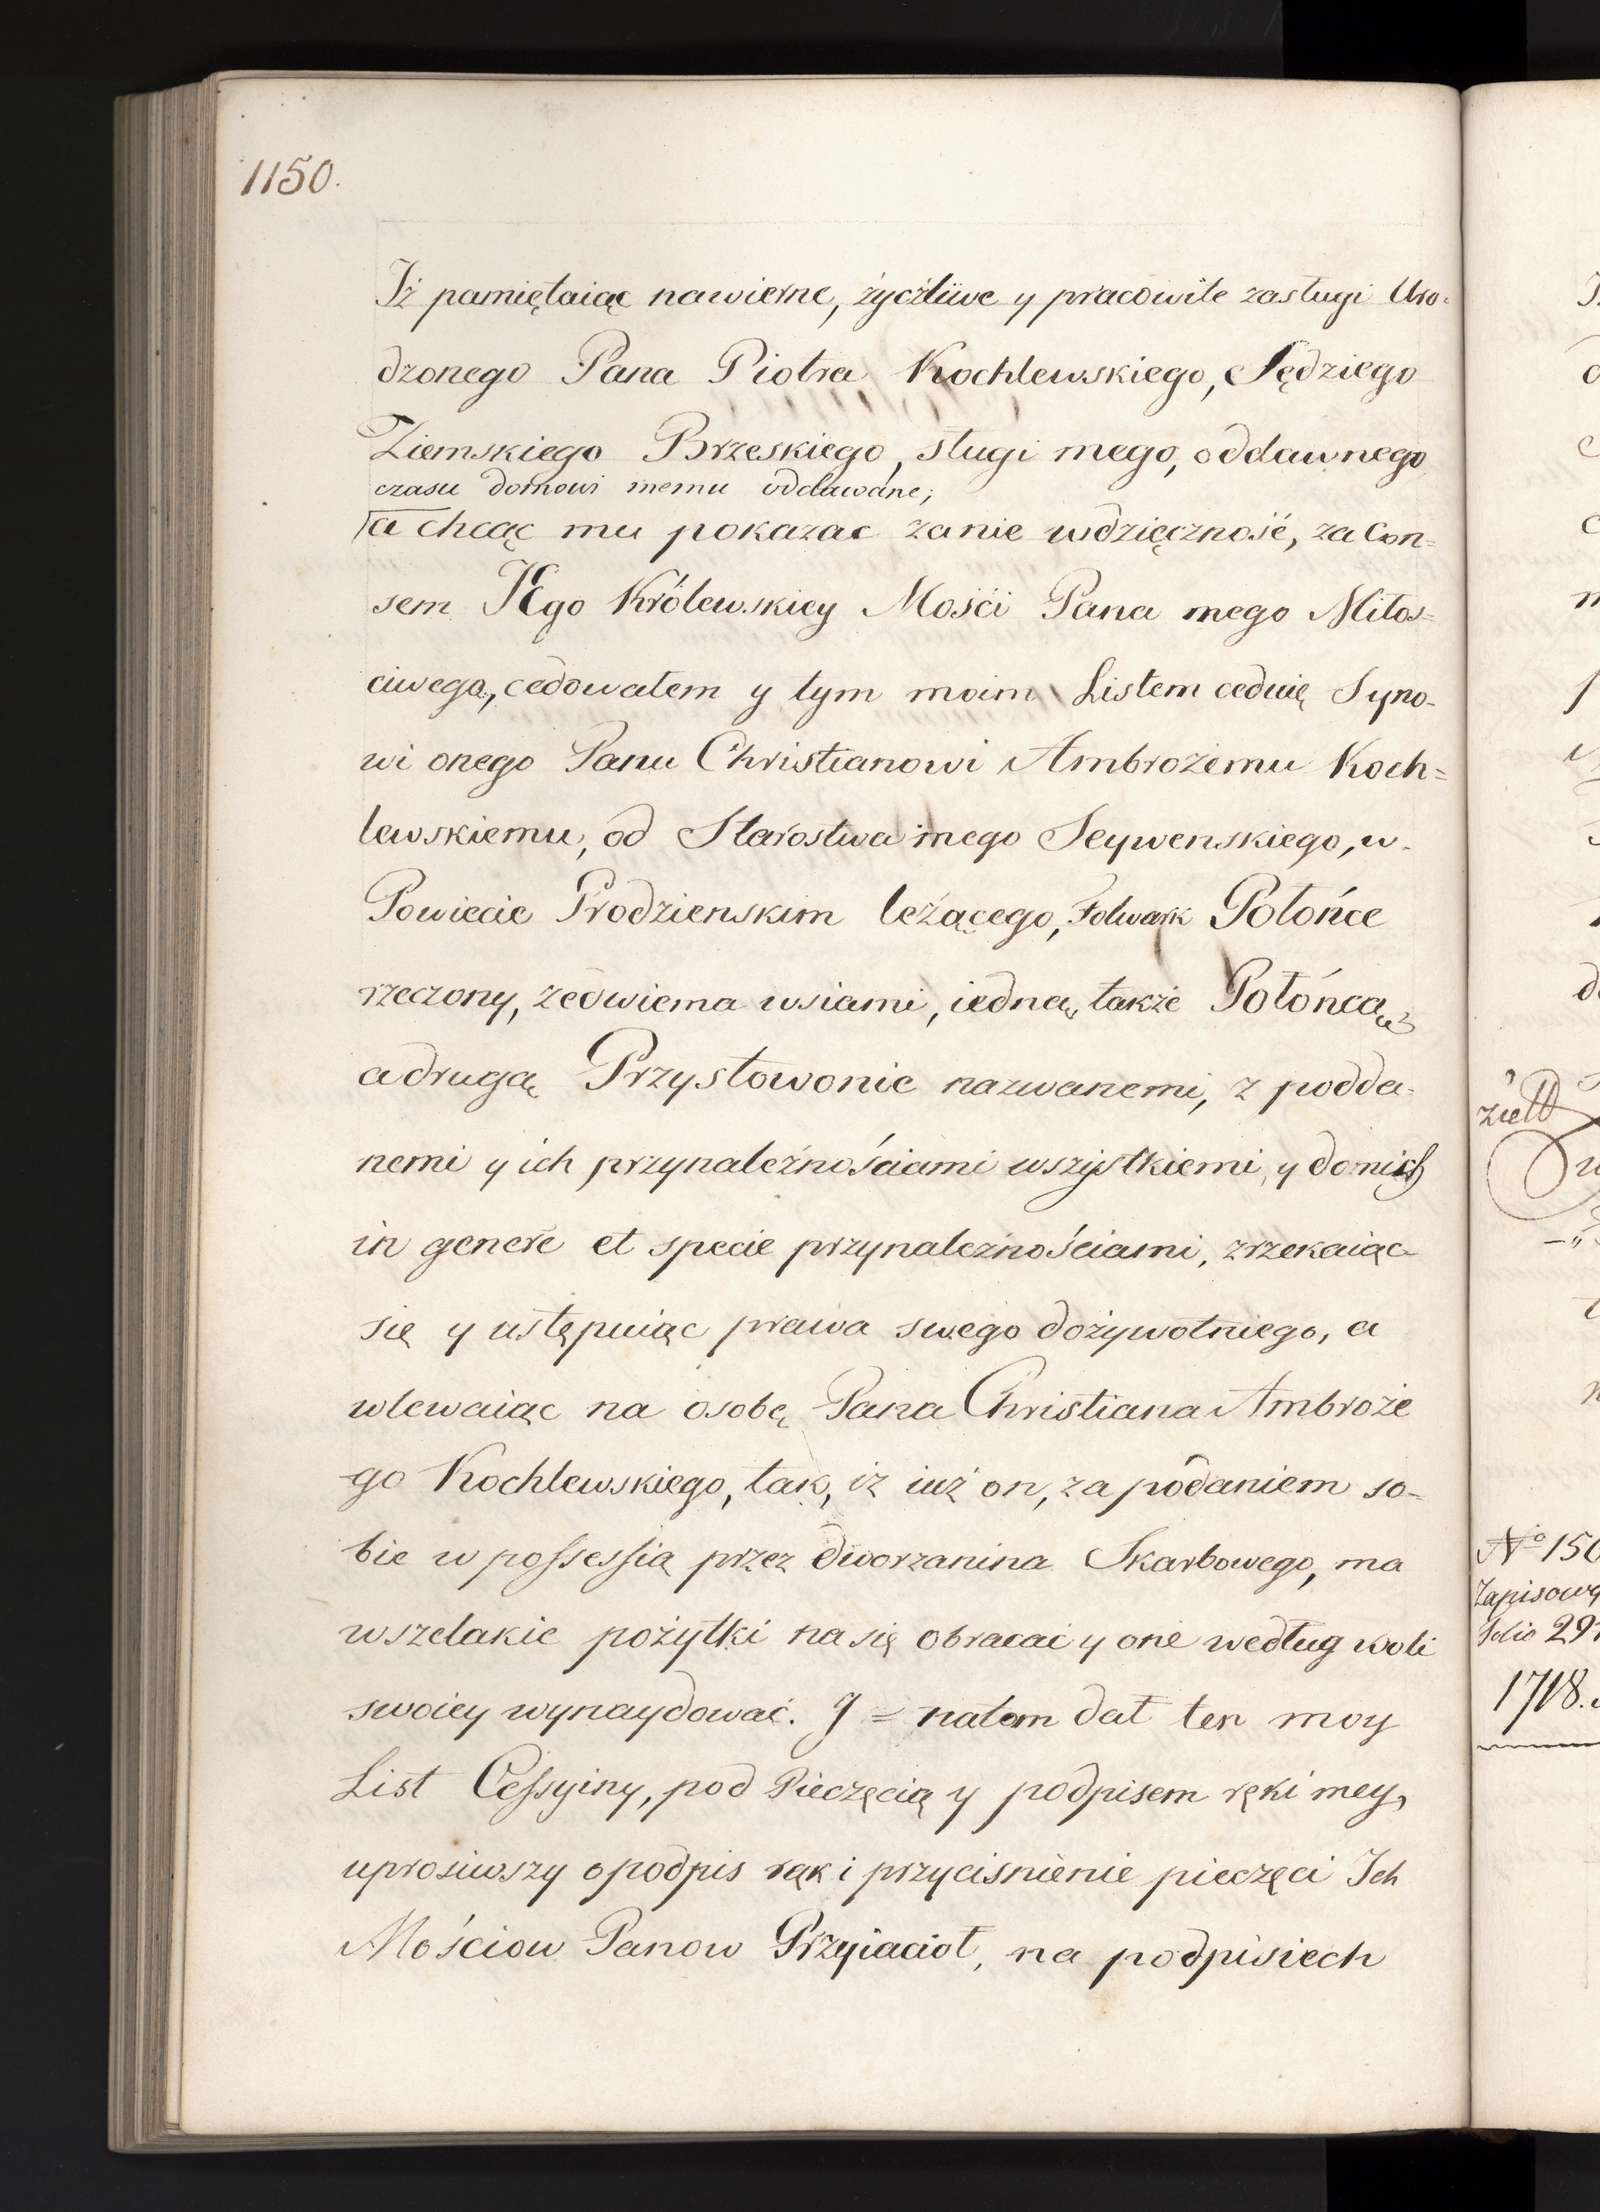 1150.
Iż pamiętaiąc nawierne, życzliwe y pracowite zasługi Uro-
dzonego Pana Piotra Kochlewskiego, Sędziego
Ziemskiego Brzeskiego, sługi mego, oddawnego
czasu domowi memu oddawane;
a chcąc mu pokazac zanie wdzięczność, za Con=
sem JEgo Królewskiey Mośći Pana mego Miłos=
ciwego, cedowałem y tym moim Listem ceduię Syno-
wi onego Panu Christianowi Ambrożemu Koch=
lewskiemu, od Starostwa mego Seywenskiego, w
Powiecie Prodzienskim leżącego, Folwark Połońce
rzeczony, zedwiema wsiami, iedną, także Połońcą
adrugą Przystowonie nazwanemi, z podda-
nemi y ich przynależnościami wszystkiemi, y donich
in genere et specie przynależnościami, zrzekaiąc
się y ustępuiąc prawa swego dożywotniego, a
wlewaiąc na osobę Pana Christiana Ambroże
-go Kochlewskiego, tak, iż iuż on, za podaniem so-
bie w possessią przez dworzanina Skarbowego, ma
wszelakie pożytki na się obracać y one według woli
swoiey wynaydować. J = natem dał ten moy
List Cessyiny, pod Pieczęcią y podpisem ręki mey,
uprosiwszy o podpis rąk i przyciśnienie pieczęci Ich
Mościow Panow Przyiacioł, na podpisiech
No 150
Zapisowy
folio 29
1718.